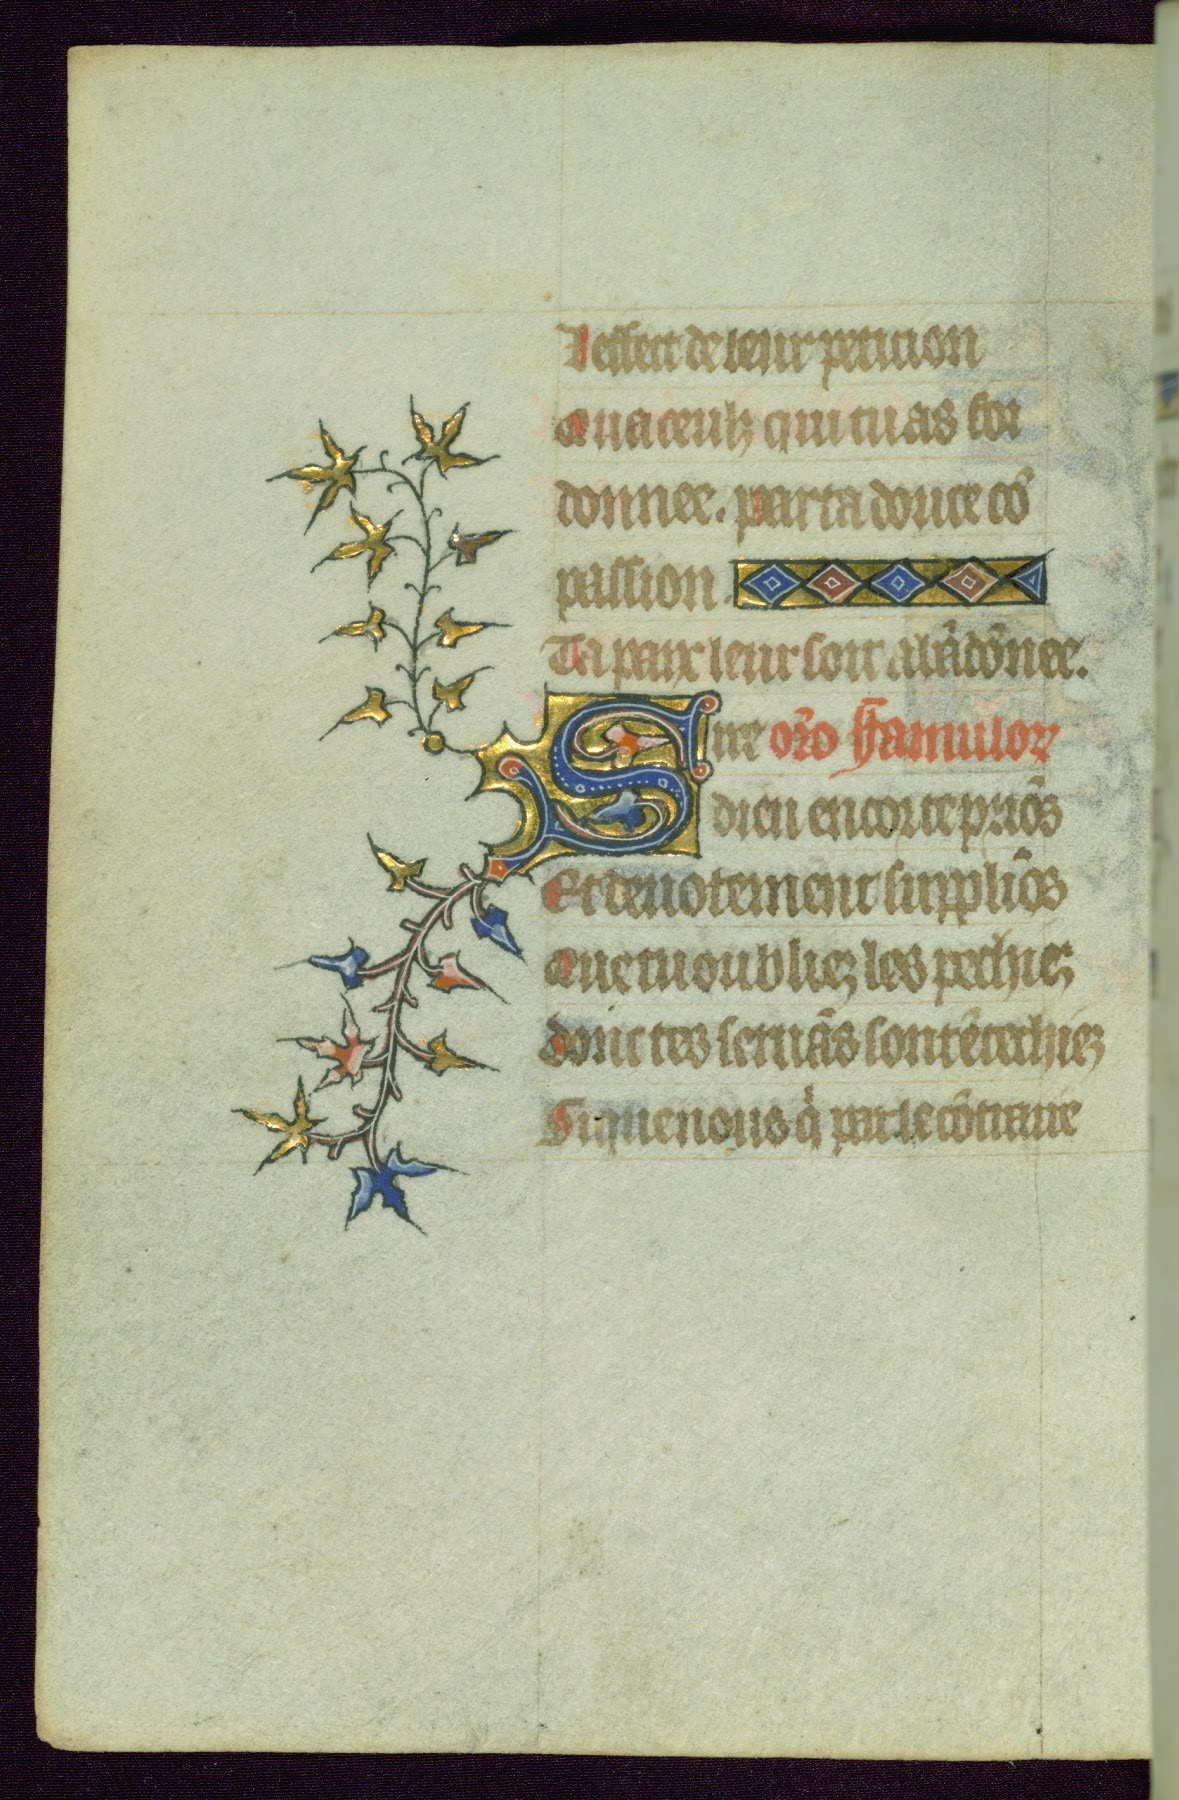 Leffect de leur peticion
Qua ceulz qui tu as foi
donnee. par ta douce cō
passion.
Ta paix leur soit abādōnee.
Sire orō Famulor
dieu encor te priōs
Et deuotement suppliōs
Que tu oubliez les pechiez
Donc tes seruās sont ētechiez
Si que nous q̄ par le cōtraire